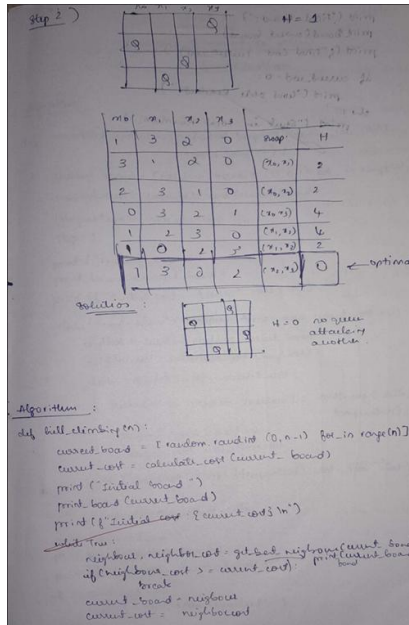 Step 2)
x0 x1 x2 x3
Q
H = 1
Q
Q
Q
x0 x1 x2 x3
1 3 2 0 swap H
3 1 2 0 (x0, x1) 2
2 3 1 0 (x0, x2) 2
0 3 2 1 (x0, x3) 4
1 2 3 0 (x1, x2) 4
1 0 2 3 2
1 3 0 2 (x2, x3) 0 ← optimal
Solution :
Q
Q
Q
Q
H = 0 no queen
attacking
another
Algorithm :
def hill_climbing(n):
current_board = [random.randint (0, n-1) for_in range(n)]
current_cost = calculate_cost (current_board)
print ("Initial board")
print_board (current_board)
print (f"Initial cost {current cost} \n")
while True:
neighbour, neighbor_cost = get best neighbour(current_board
if (neighbour_cost >= current_cost): print(current_board
break
current_board = neighbour
current_cost = neighborcost